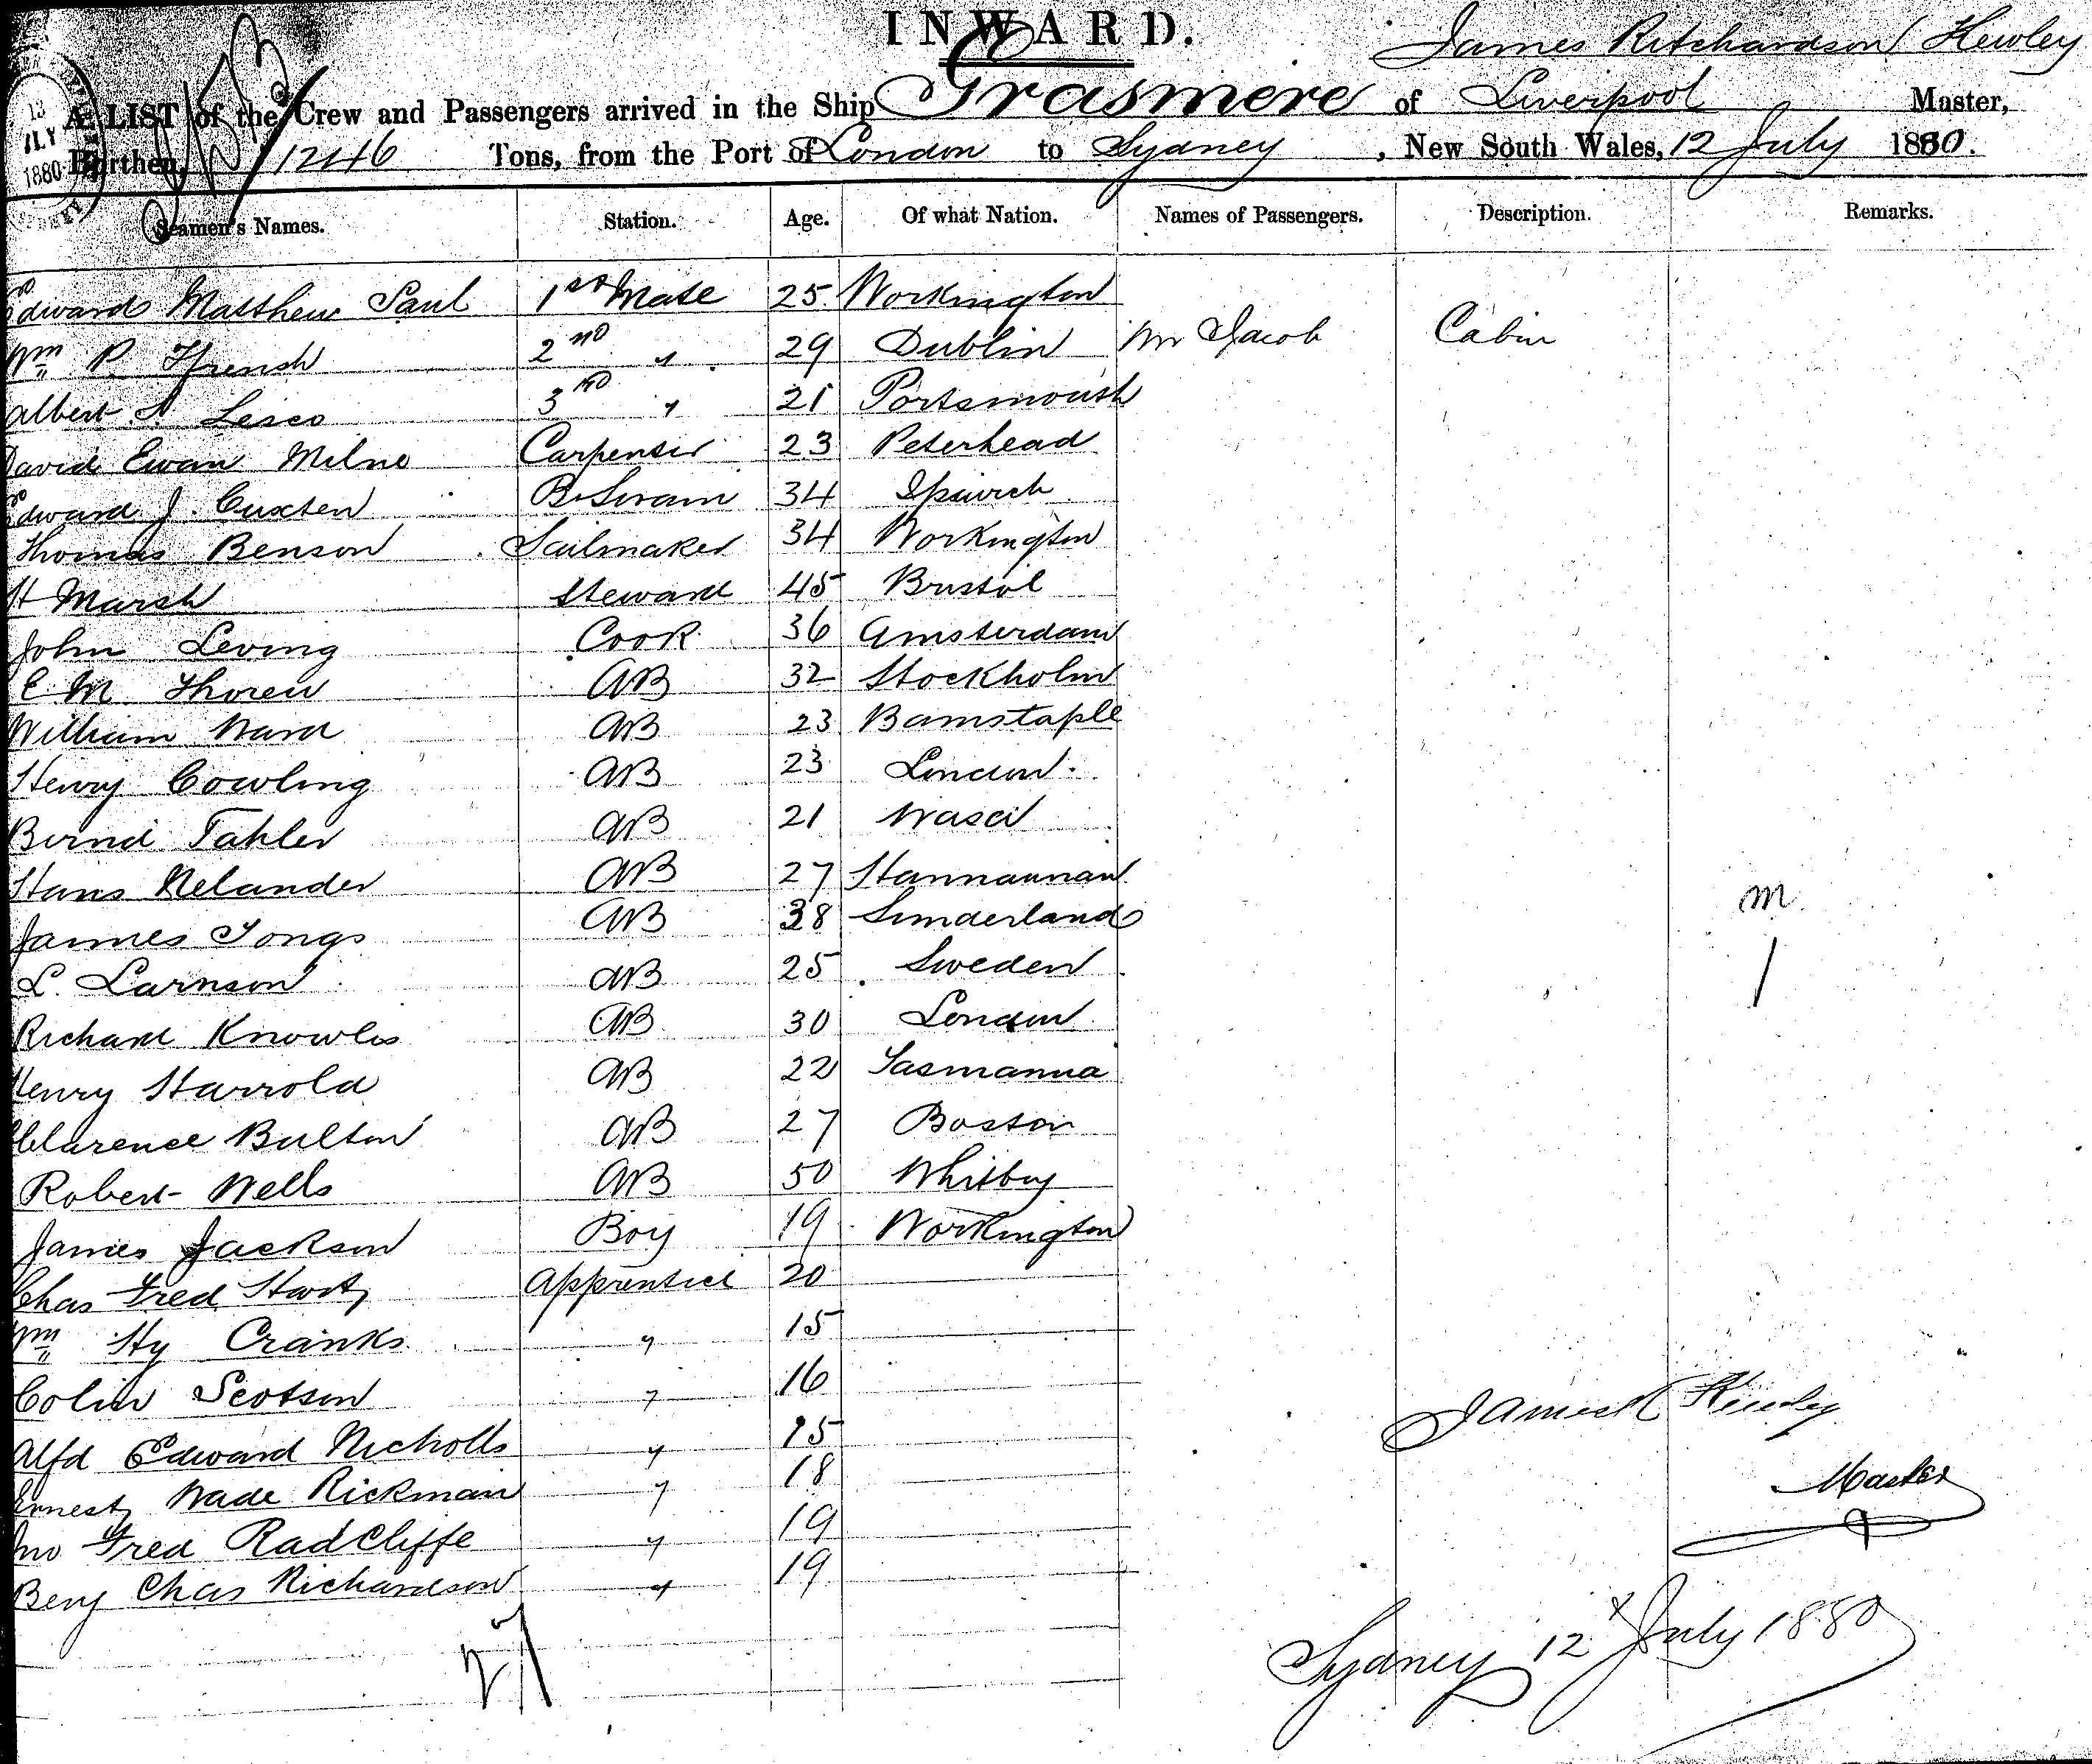 INWARD.
James Ritchardson Hewley
A LIST of the Crew and Passengers arrived in the Ship Grasmere of Liverpool Master,
Burthen 1246 Tons, from the Port of London to Sydney, New South Wales, 12 July 1880.
13
JLY
1880
Seamen's Names. Station. Age. Of what Nation. Names of Passengers. Description. Remarks.
Edward Matthew Saul 1st Mate 25 Workington
Wm P. Ffrench 2nd " 29 Dublin Mr Jacob Cabin
Albert A Lesco 3rd " 21 Portsmouth
David Ewan Milne Carpenter 23 Peterhead
Edward J. Cuxten B.Swain 34 Ipswich
Thomas Benson Sailmaker 34 Workington
H Marsh Steward 45 Bristol
John Leving Cook 36 Amsterdam
C. M Thoren AB 32 Stockholm
William Ward AB 23 Barnstaple
Henry Cowling AB 23 London
Bernd Tahler AB 21 Wasa
Hans Nelander AB 27 m
James Tongs AB 38 Sunderland
L. Larnson AB 25 Sweden 1
Richard Knowles AB 30 London
Henry Harrold AB 22 Tasmania
Clarence Bulton AB 27 Boston
Robert Wells AB 50 Whitby
James Jackson Boy 19 Workington
Chas Fred Hart Apprentice 20
Wm Hy Cranks " 15
Colin Scotson " 16
Alfd Edward Nicholls " 15
Ernest Wade Rickman " 18
Jno Fred Radcliffe " 19
Benj Chas Richardson " 19
27
James R Hewley
Master
Sydney 12th July 1880